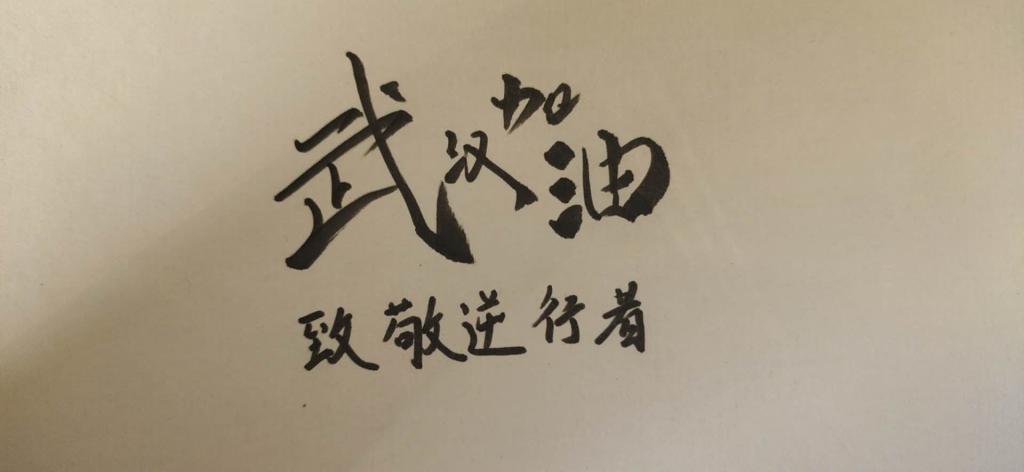 武汉加油
致敬逆行者